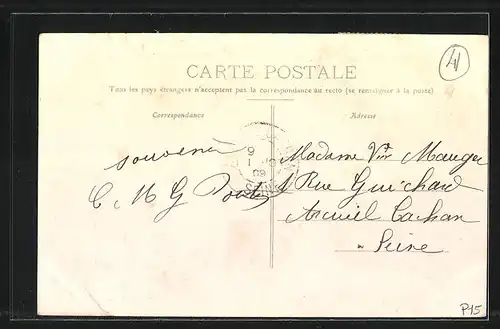 CARTE POSTALE
Tous les pays étrangers n'acceptent pas la correspondance au recto (se renseigner à la poste)
Correspondance
Adresse
souvenir
C. M G
Madame Vve Mauger
Rue Guichard
Arcueil Cachan
Seine
P15